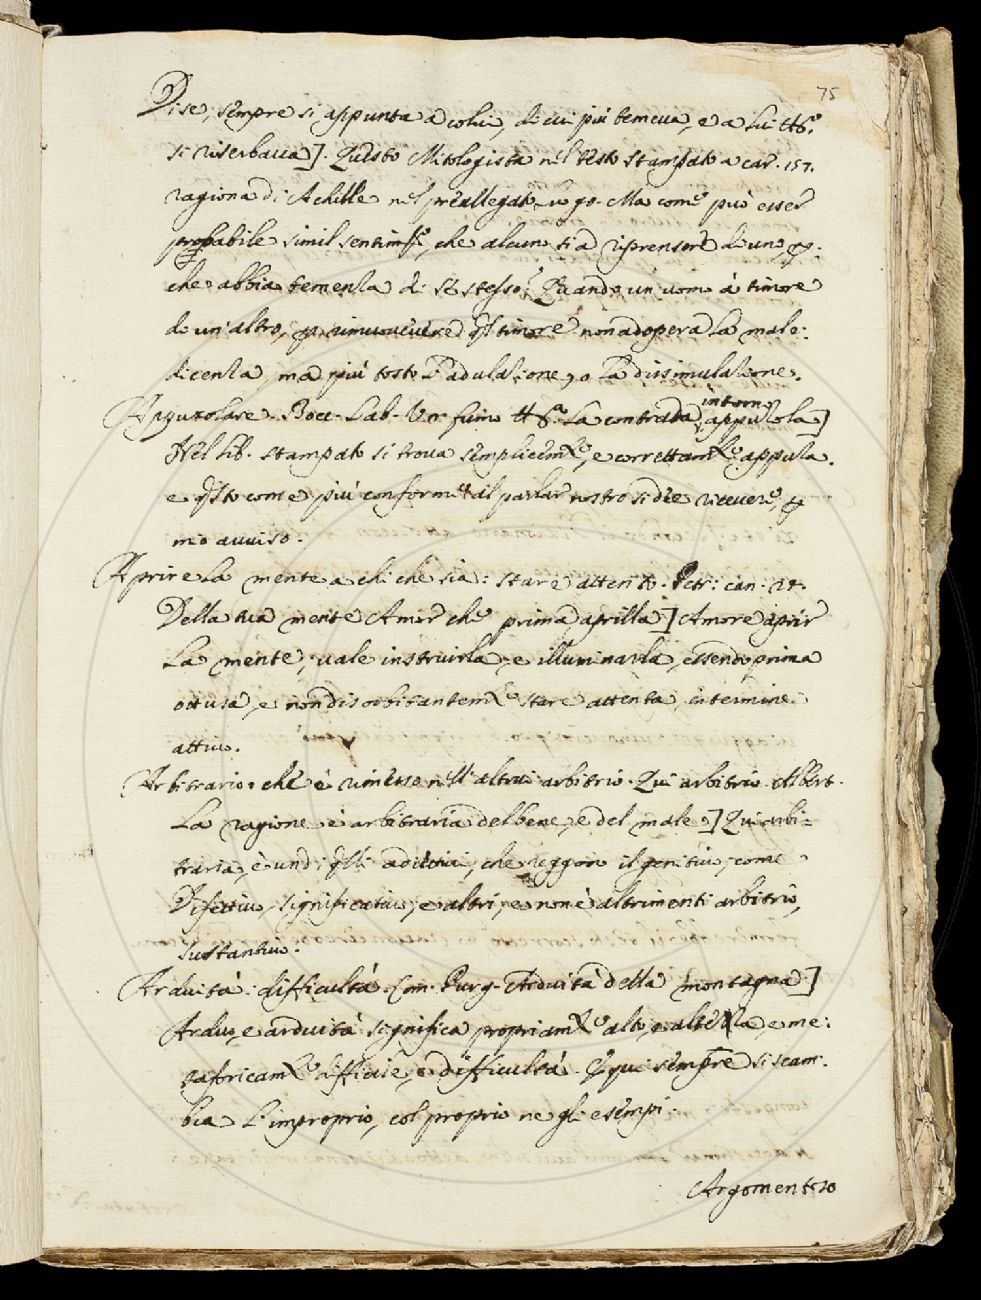 75
Dise, sempre si appunta a colui, di cui più temeva, e a lui
si riserbava]. Questo Mitologista nel testo stampato a car. 157.
ragiona di Achille nel preallegato luogo. Ma come può esser
probabile simil sentimto, che alcun sia riprensore di uno, p.
che abbia temenza di se stesso? Quando un uomo à timore
di un'altro, p rimuovere qsto timore non adopera la male:
dicenza, ma più tosto l'adulazione, o la dissimulazione.
intorno
Apuzolare. Bocc. Lab. Vn fum la contrada appuzola]
Nel lib. stampato si trova semplicemte, e correttamte appuza.
e qsto come più conforme al parlar nostro si dee ricevere, p
mio avviso.
Aprire la mente a chi che sia: stare attento. Petr: can: 27.
Della tua mente Amor che prima aprilla] Amore aprir
la mente, vale instruirla, e illuminarla, essendo prima
ottusa, e non disorbitantemte stare attenta, in termine
attivo.
Arbitrario. che è rimesso nell'altrui arbitrio. Qui arbitrio. Albert.
La ragione è arbitraria del bene, e del male.] Qui arbi=
traria, è un di qlli adietivi, che reggono il genitivo, come
Difettivo, significativo, e altri, e non è altrimenti arbitrio,
sustantivo.
Arduità: difficultà. Com. Purg. Arduità della montagna]
Arduo, e arduità significa propriamte alto, e altezza, e me:
taforicamte difficile, e difficultà. E qui sempre si scam:
bia l'improprio, col proprio ne gli esempi.
Argomentoso